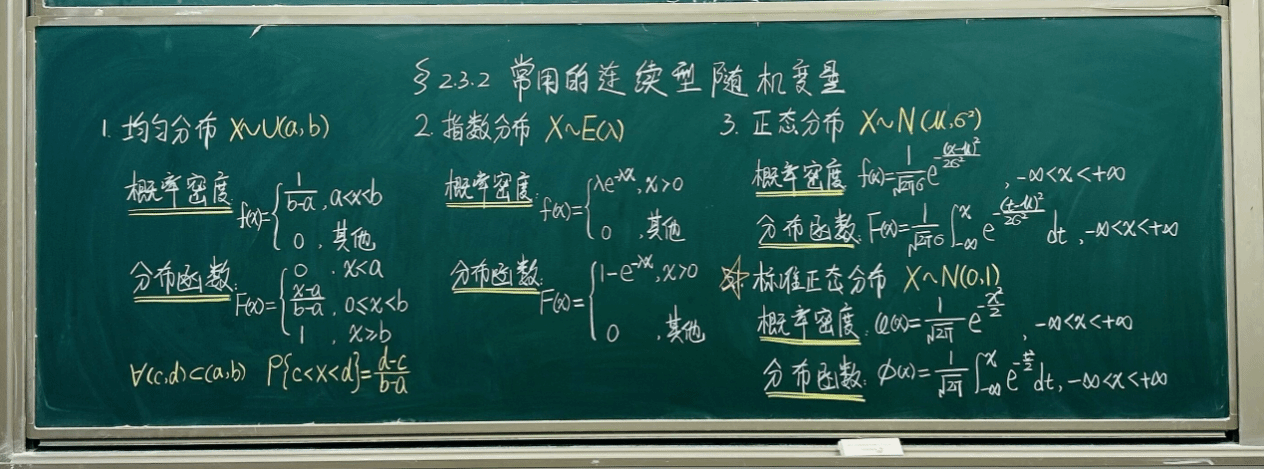 § 2.3.2 常用的连续型随机变量
1. 均匀分布 X~U(a,b)
概率密度: f(x)={ 1/(b-a), a<x<b
0, 其他
分布函数: F(x)={ 0, x<a
(x-a)/(b-a), 0≤x<b
1, x≥b
∀(c,d)⊂(a,b) P{c<X<d}=(d-c)/(b-a)
2. 指数分布 X~E(λ)
概率密度: f(x)={ λe^(-λx), x>0
0, 其他
分布函数: F(x)={ 1-e^(-λx), x>0
0, 其他
3. 正态分布 X~N(μ,σ²)
概率密度: f(x)=1/(√2π σ) e^(-(x-μ)²/2σ²), -∞<x<+∞
分布函数: F(x)=1/(√2π σ) ∫_{-∞}^{x} e^(-(t-μ)²/2σ²) dt, -∞<x<+∞
☆ 标准正态分布 X~N(0,1)
概率密度: φ(x)=1/√2π e^(-x²/2), -∞<x<+∞
分布函数: Φ(x)=1/√2π ∫_{-∞}^{x} e^(-t²/2) dt, -∞<x<+∞